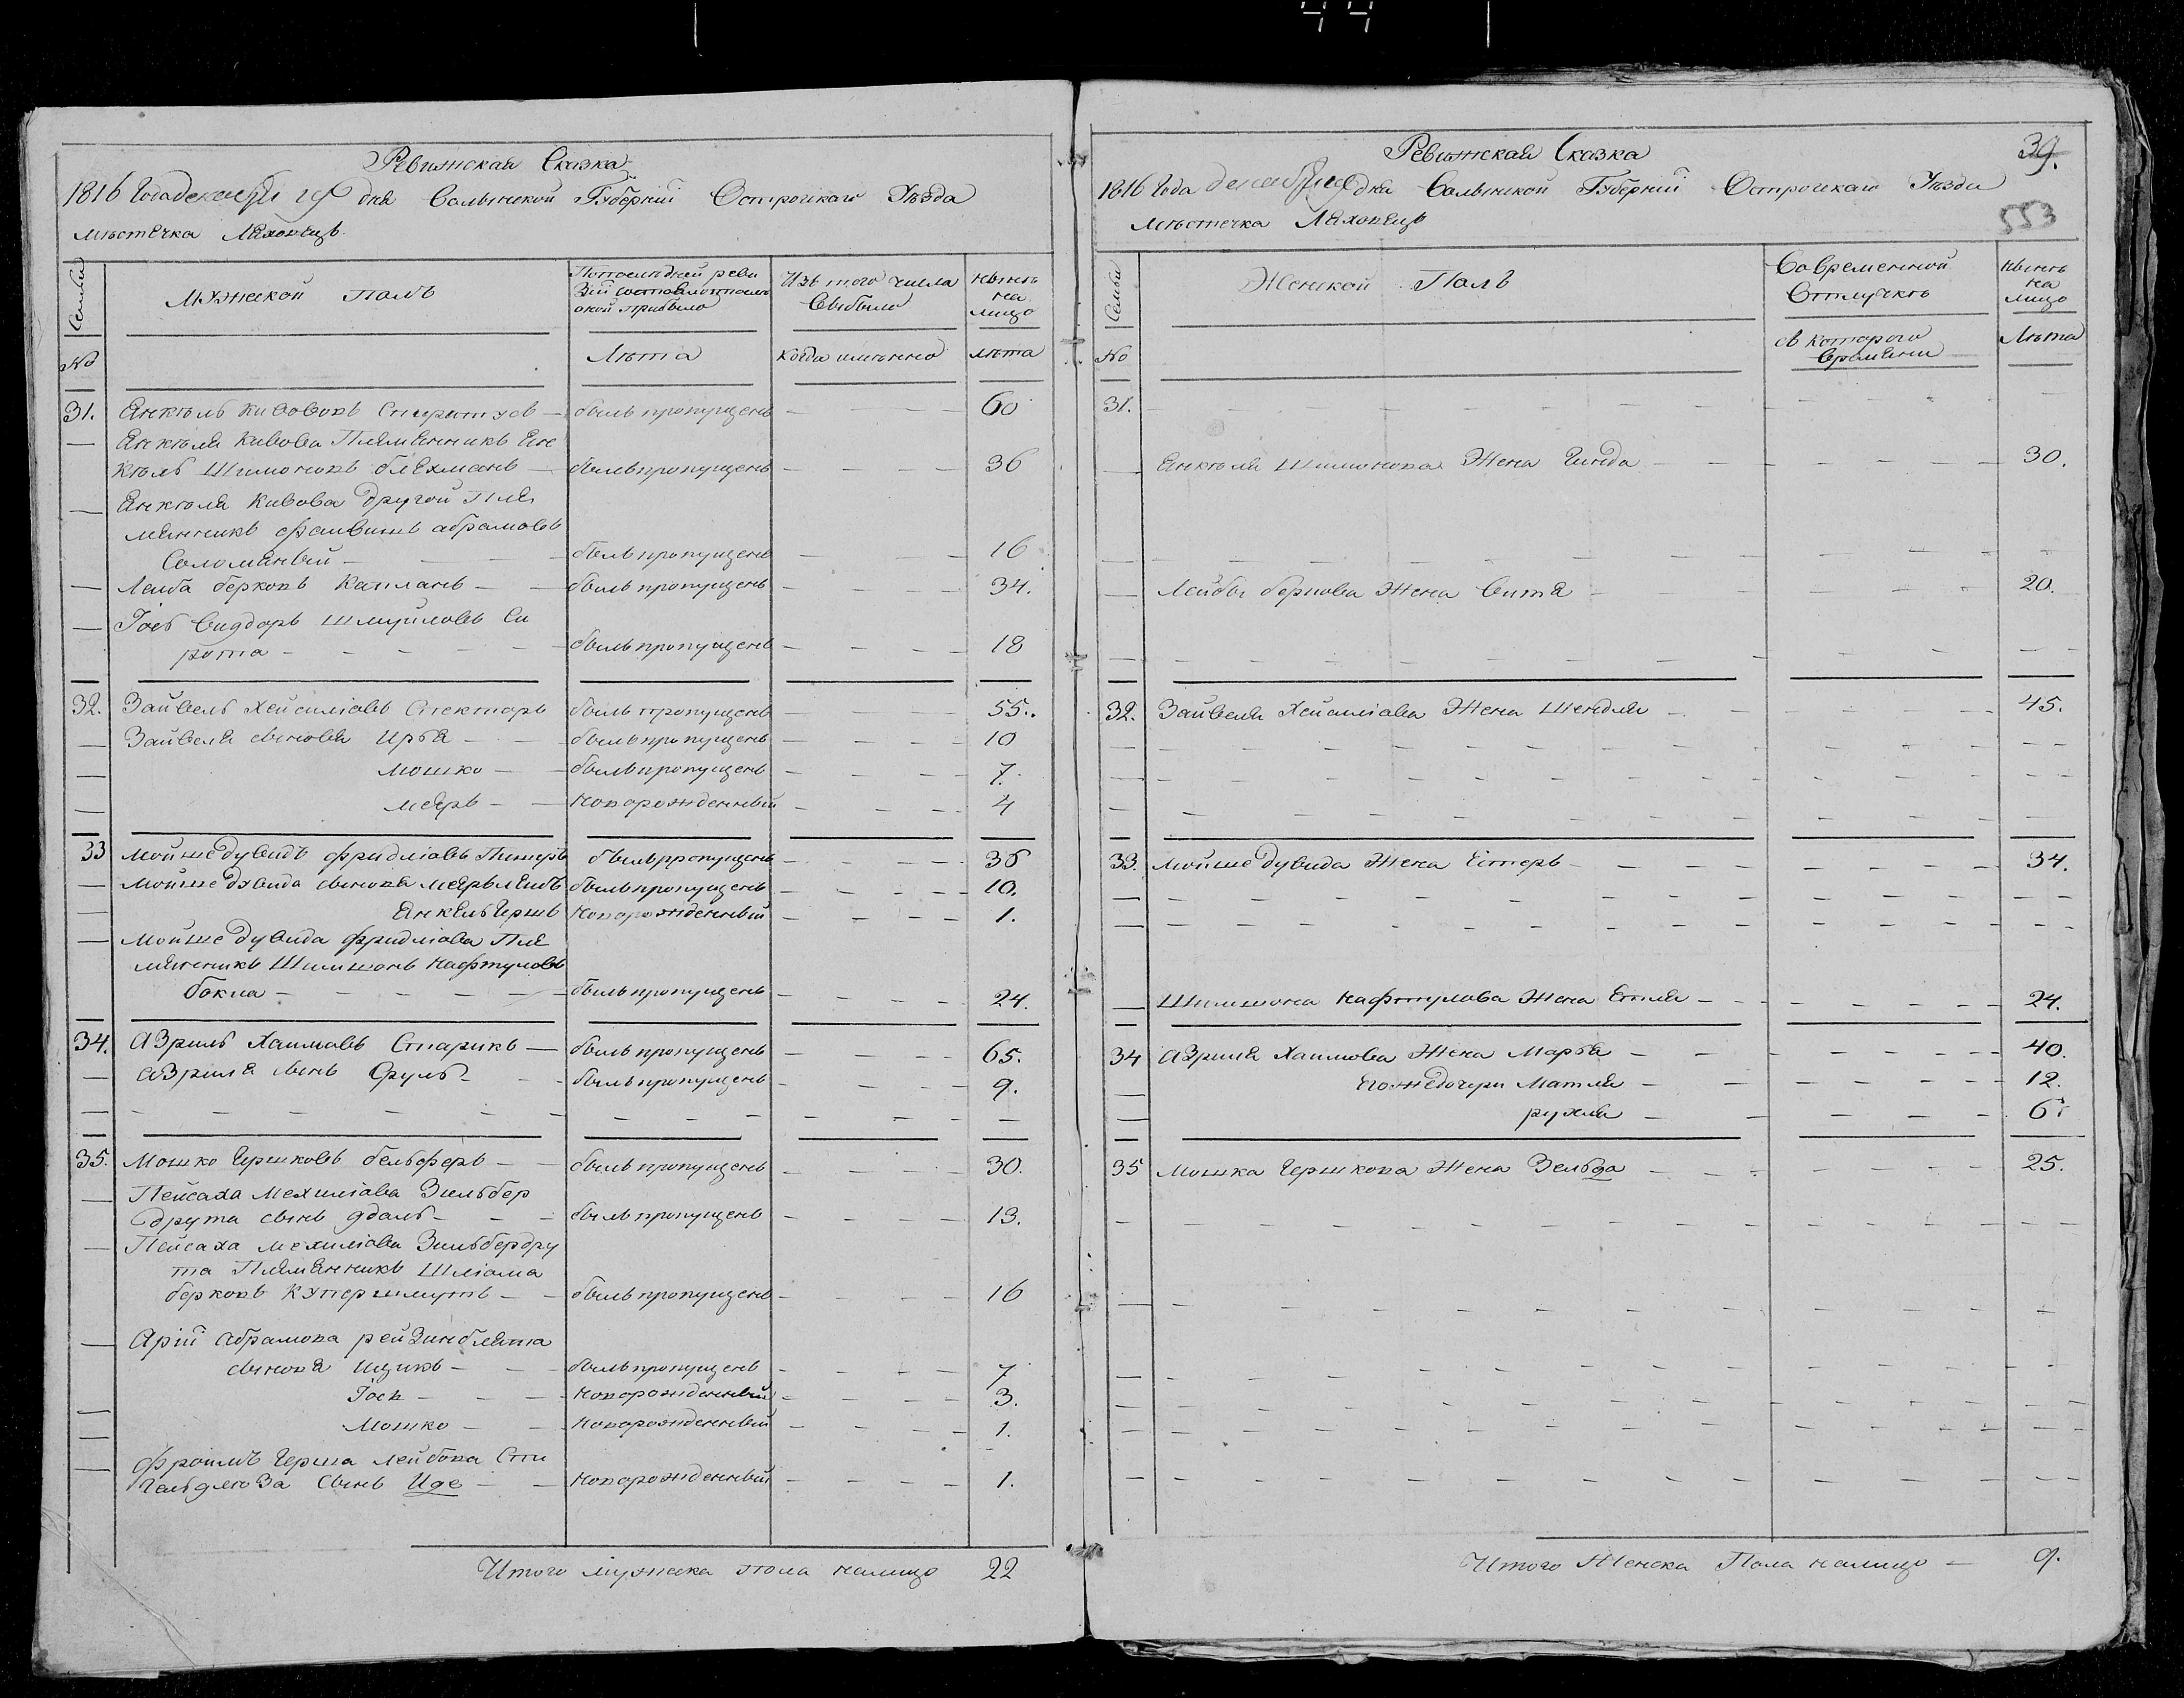 44
Ревижская Сказка
1816 Года декабря дня Волынской Губерніи Острогскаго Уезда
местечка Ляховецъ
Семьи
Мужеской полъ
По последней реви
зіи состояло и после
оной прибыло
Изъ того числа
Выбыло
ныне
на
лицо
№
Лета
Когда именно
лета
31. Янкель Кивовъ был пропущенъ — 60
— Янкеля Кивова Племянникъ Ян
кель Шимоновъ Блехманъ — былъ пропущенъ — 36
— Янкеля Кивова другой Пле
мянникъ Файвишъ абрамовъ
Соломяный — былъ пропущенъ — 16
— Лейба берковъ Капланъ — былъ пропущенъ — 34.
— Іосъ Сидоръ Шмуйловъ Си
рота — былъ пропущенъ — 18
32. Зайвель Хейсиліовъ Спекторъ былъ пропущенъ — 55.
— Зайвеля сыновя Ирья — былъ пропущенъ — 10
— Мошко — былъ пропущенъ — 7.
— меяръ — новорожденный — 4
33 мойше дувидъ фридліовъ былъ пропущенъ — 36
— мойше дувида сыновя меяръ лейбъ былъ пропущенъ — 10.
— Янкель Гершъ новорожденный — 1.
— мойше дувида фридліова Пле
мянникъ Шимшонъ нафтуловъ
бокса — былъ пропущенъ — 24.
34. азриль Хаимовъ Старикъ — былъ пропущенъ — 65.
— азріля сынъ Сруль — былъ пропущенъ — 9.
35. Мошко Гершковъ бельферъ — былъ пропущенъ — 30.
— Пейсаха мехиліова Зильбер
друта сынъ — былъ пропущенъ — 13.
— Пейсаха мехиліова Зильбердру
та Племянникъ Шліома
берковъ Купершмутъ — былъ пропущенъ — 16
— Арій абрамова рейзинблята
сыновя ицикъ — былъ пропущенъ — 7
— Іось — новорожденный — 3.
— Мошко — новорожденный — 1.
— фроимъ Герша лейбова Сти
сынъ Иде — новорожденный — 1.
Итого мужеска пола налицо 22
Ревижская Сказка
39.
1816 Года декабря дня Волынской Губерніи Острогскаго Уезда
местечка Ляховецъ
553
Семьи
Женской Полъ
Во временной
Отлучке
ныне
на
лицо
№
съ котораго
времяни
Лета
31.
— Янкеля Шимонова Жена Гинда — 30.
— Лейбы беркова Жена — 20.
32. Зайвеля Хейсиліова Жена Шендля — 45.
33. мойше дувида Жена Естеръ — 34.
— Шимшона нафтулова Жена Етля — 24.
34 азриля Хаимова Жена Марья — 40.
— Его же дочери Матля — 12.
— рухля — 6
35 мошка Гершкова Жена Зельда — 25.
Итого Женска Пола налицо — 9.